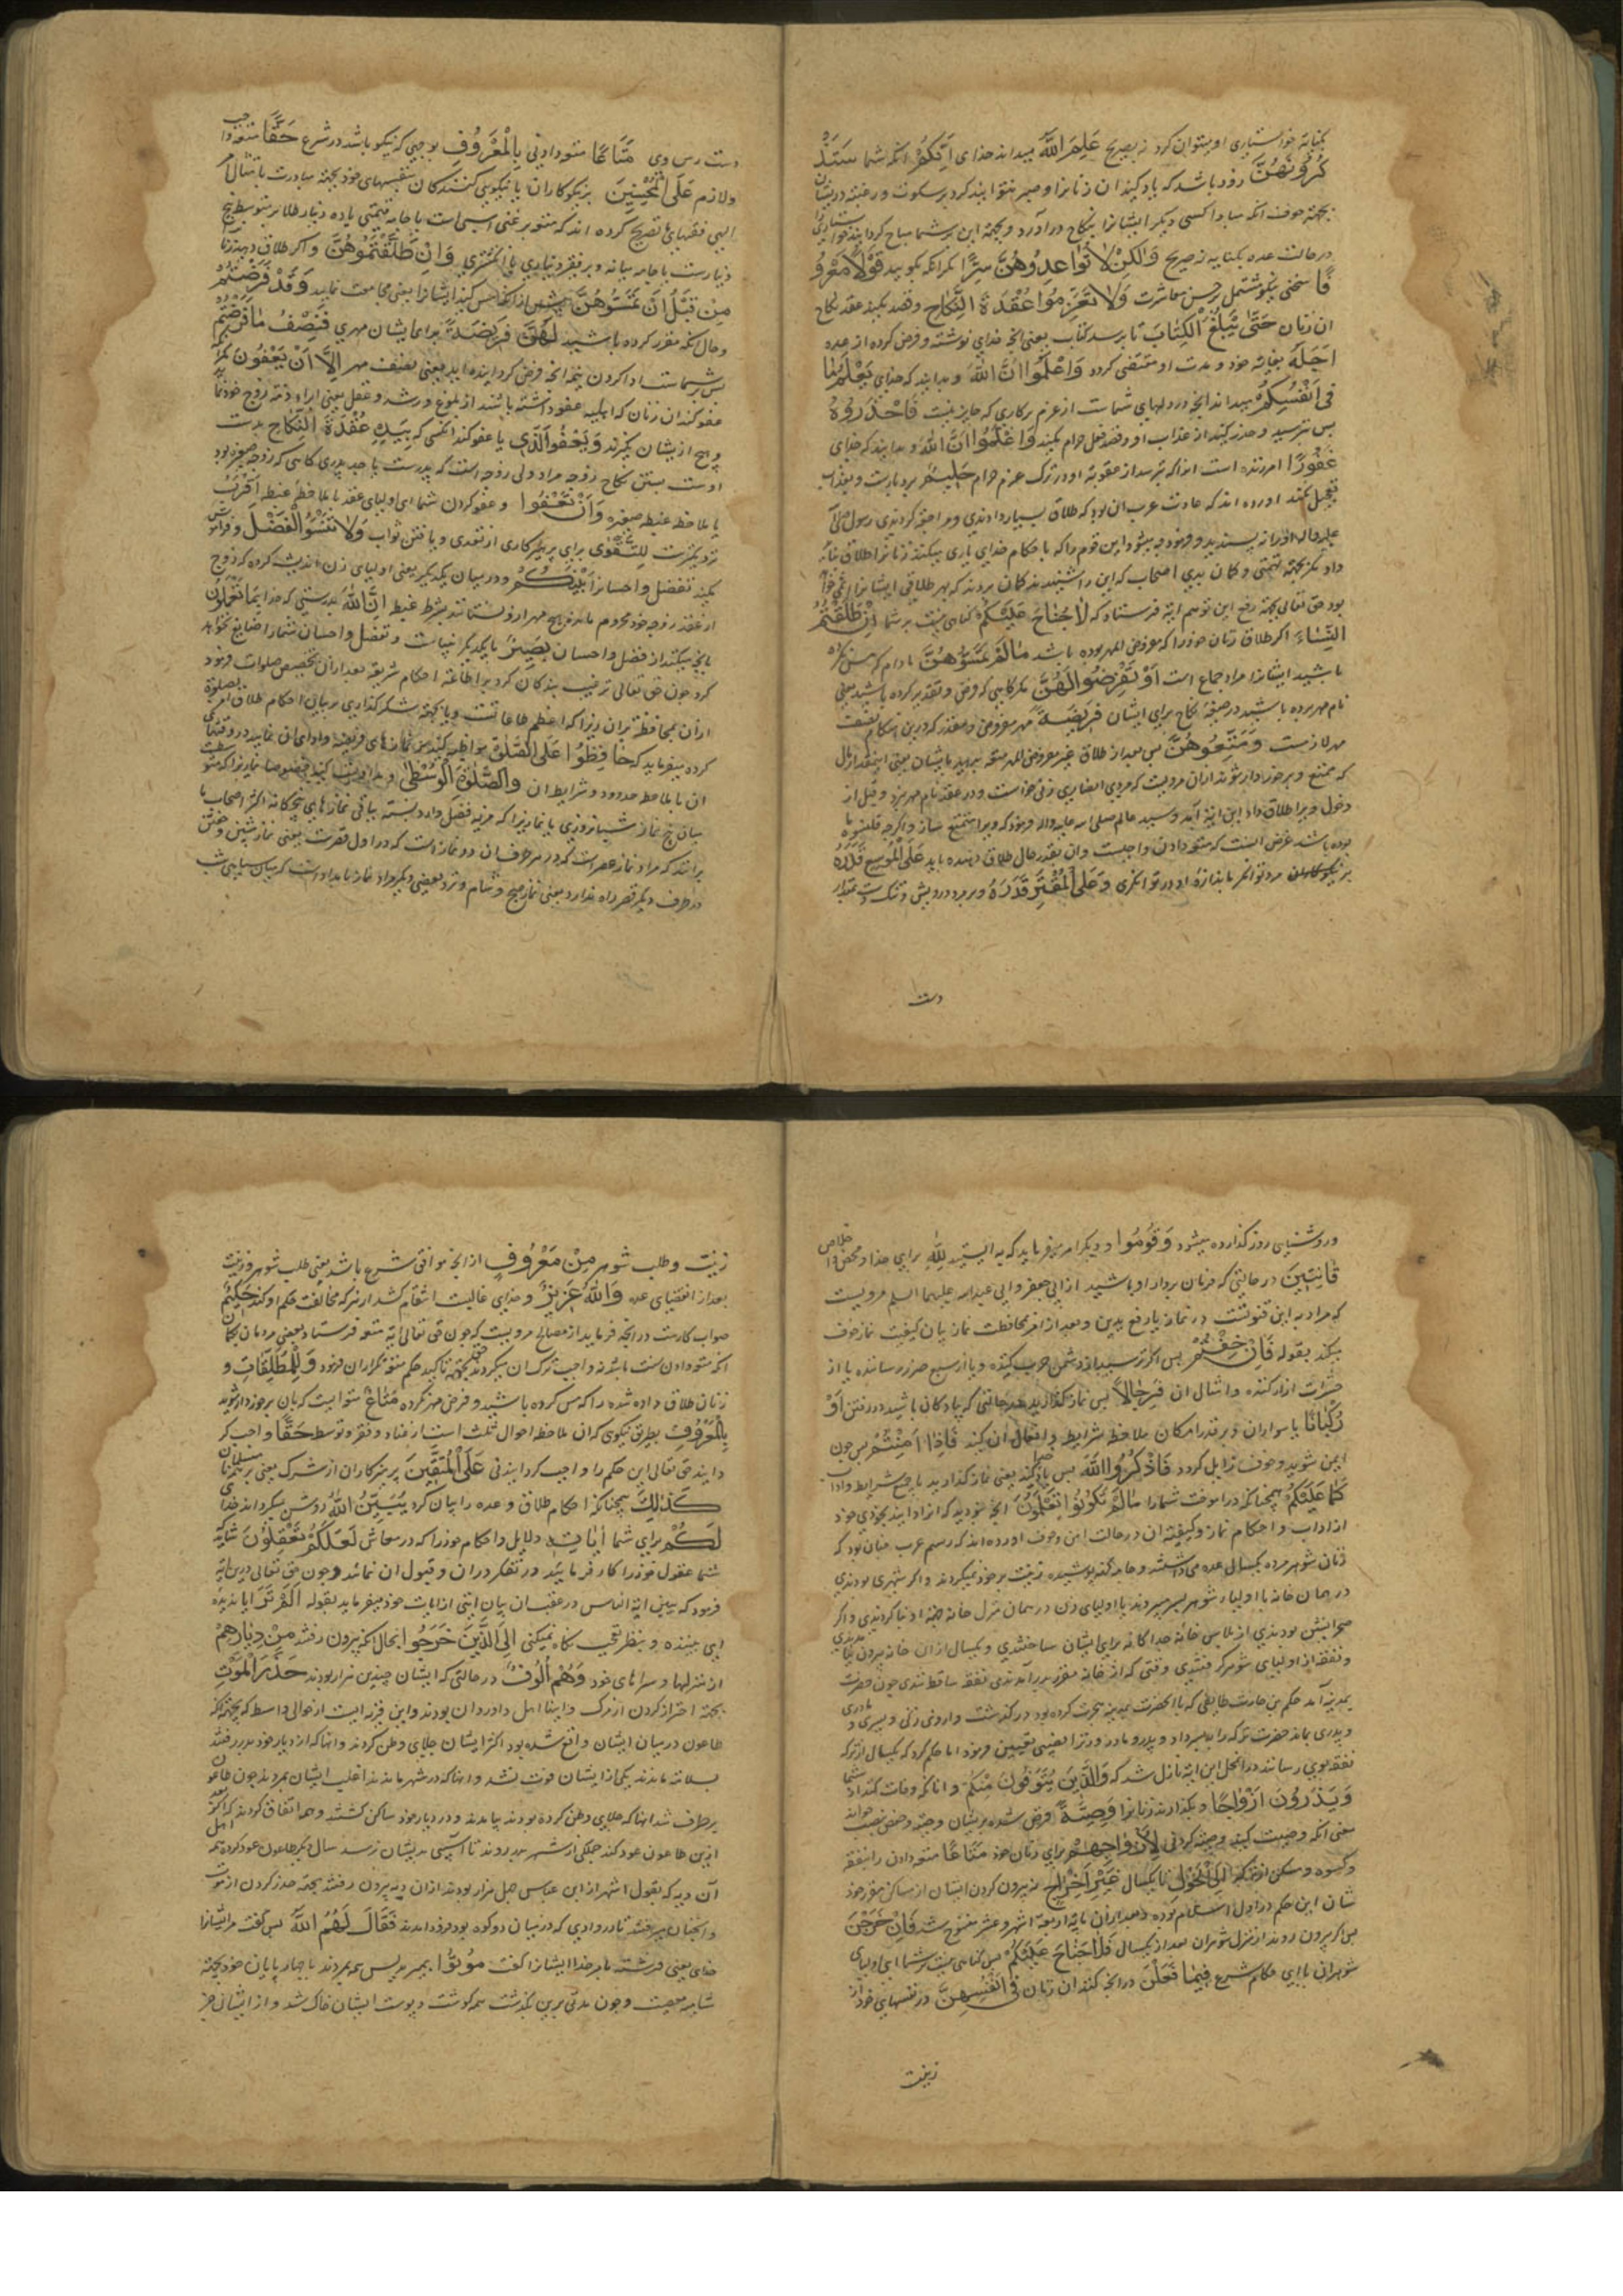 بکنایة خواستاری او میتوان کرد نه بصریح عَلِمَ اللّٰهُ میداند خدای اَنَّکُمْ آنکه شما سَتَذْ
کُرُونَهُنَّ زود باشد که یاد کنید ان زنانرا و صبر نتوانید کرد بر سکوت و رغبت در ایشان
بجهة خوف آنکه مبادا کسی دیگر ایشانرا بنکاح درآورد و بجهة این بر شما مباح کردانید خواستاریرا
در حالت عده بکنایه نه صریح وَلٰکِنْ لاٰ تُوٰاعِدُوهُنَّ سِرًّا مکر انکه بکویید قَوْلاً مَعْرُو
فًا سخنی نیکو مشتمل بر حسن معاشرت وَلاٰ تَعْزِمُوا عُقْدَةَ النِّکٰاحِ و قصد مکنید عقد نکاح
ان زنان حَتّٰی یَبْلُغَ الْکِتٰابُ تا برسد کتاب یعنی انچه خدای نوشته و فرض کرده از عده
اَجَلَهُ بغایة خود و مدت او منقضی کردد وَاعْلَمُوا اَنَّ اللّٰهَ و بدانید که خدای یَعْلَمُ مٰا
فی اَنْفُسِکُمْ میداند انچه در دلهای شماست از عزم بر کاری که جایز نیست فَاحْذَرُوهُ
پس بترسید و حذر کنید از عذاب او و قصد فعل حرام مکنید وَاعْلَمُوا اَنَّ اللّٰهَ و بدانید که خدای
غَفُورٌ امرزنده است انرا که بترسد از عقوبة او در ترک عزم حرام حَلیمٌ بردبارست و بعذاب
تعجیل نکند اورده اند که عادت عرب ان بود که طلاق بسیار دادندی و مراجعه کردندی رسول صلی الله
علیه واله انرا نه پسندید و فرمود چه میشود این قوم را که با حکام خدای بازی میکنند زنانرا طلاق نباید
داد مکر بجهة تهمتی و کمان بدی اصحاب که این را شنیدند کمان بردند که بهر طلاقی ایشانرا اثمی خواهد
بود حق تعالی بجهة رفع این توهم ایة فرستاد که لاٰ جُنٰاحَ عَلَیْکُمْ کناهی نیست بر شما اِنْ طَلَّقْتُمُ
النِّسٰاءَ اکر طلاق زنان خود را که مفوض المهر بوده باشد مٰا لَمْ تَمَسُّوهُنَّ مادام که مس نکرده
باشید ایشانرا مراد جماع است اَوْ تَفْرِضُوا لَهُنَّ مکر کاهی که فرض و تقدیر کرده باشید یعنی
نام مهر برده باشید در صیغه نکاح برای ایشان فَریضَةً مهر مفروض و مقدر که در این هنکام نصف
مهر لازمست وَمَتِّعُوهُنَّ پس بعد از طلاق غیر مفروض المهر متعه بدهید بایشان یعنی اینقدر از مال
که متمتع و برخوردار شوند از ان مرویست که مردی انصاری زنی خواست و در عقد نام مهر نبرد و قبل از
دخول ویرا طلاق داد این ایة آمد و سید عالم صلی الله علیه واله فرمود که ویرا متمتع ساز و اکرچه قلنسوه
بوده باشد غرض انست که متعه دادن واجبست وان بقدر حال طلاق دهنده باید عَلَی الْمُوسِعِ قَدَرُهُ
بر مرد توانکر باندازهٔ او در توانکری وَعَلَی الْمُقْتِرِ قَدَرُهُ و بر مرد درویش و تنک دست بمقدار
دست
دست رس وی مَتٰاعًا متعه دادنی بِالْمَعْرُوفِ بوجهی که نیکو باشد در شرع حَقًّا متعه واجب
ولازم عَلَی الْمُحْسِنینَ بر نیکوکاران یا نیکویی کنندکان بنفسهای خود بجهة مبادرت بامتثال امر
الهی فقهای ما تصریح کرده اند که متعه بر غنی اسبی است یا جامه قیمتی یا ده دینار طلا بر متوسط پنج
دینارست یا جامه میانه و بر فقیر دیناری یا انکشتری وَاِنْ طَلَّقْتُمُوهُنَّ و اکر طلاق دهید زنانرا
مِنْ قَبْلِ اَنْ تَمَسُّوهُنَّ پیش از آنکه مس کنید ایشانرا یعنی مجامعت نمایید وَقَدْ فَرَضْتُمْ
وحال آنکه مقرر کرده باشید لَهُنَّ فَریضَةً برای ایشان مهری فَنِصْفُ مٰا فَرَضْتُمْ
پس بر شماست ادا کردن نیمه انچه فرض کردانیده اید یعنی نصف مهر اِلاّٰ اَنْ یَعْفُونَ مکر آنکه
عفو کنند ان زنان که اهلیت عفو داشته باشند از بلوغ و رشد و عقل یعنی ابراء ذمه زوج خود نمایند
و هیچ از ایشان نکیرند وَیَعْفُوَا الَّذی یا عفو کند انکسی که بِیَدِهِ عُقْدَةُ النِّکٰاحِ بدست
اوست بستن نکاح زوجه مراد ولی زوجه است که پدرست یا جد پدری کاهی که زوجه صغیره بود
با ملاحظه غبطه صغیره وَاَنْ تَعْفُوا و عفو کردن شما ای اولیای عقد با ملاحظه غبطه اَقْرَبُ
نزدیکترست لِلتَّقْوٰی برای پرهیزکاری از تعدی و یافتن ثواب وَلاٰ تَنْسَوُا الْفَضْلَ و فراموش
مکنید تفضل و احسانرا بَیْنَکُمْ در میان یکدیکر یعنی اولیای زن اندیشه کرده که زوج
از عقد زوجه خود محروم مانده هیچ مهر ازو نستانند بشرط غبطه اِنَّ اللّٰهَ بدرستی که خدا بِمٰا تَعْمَلُونَ
بانچه میکنید از فضل و احسان بَصیرٌ بایکدیکر بیناست و تفضل و احسان شما را ضایع نخواهد
کرد چون حق تعالی ترغیب بندکان کرد بر اطاعة احکام شریعة بعد از ان تخصیص صلوات فرمود
از ان بمحافظة بران زیرا که اعظم طاعاتست و یا بجهة شکر کذاری بر بیان احکام طلاق امر بصلوة
کرده میفرماید که حٰافِظُوا عَلَی الصَّلَوٰاتِ مواظبت کنید بر نمازهای فریضه و ادای ان نمایید در وقتهای
ان با ملاحظه حدود و شرایط ان وَالصَّلٰوةِ الْوُسْطٰی و مداومت کنید خصوصا نماز میانه را که متوسط
میان پنج نماز شبانروزی یا نمازیرا که مزیه فضل دارد نسبة بباقی نمازهای پنجکانه اکثر اصحاب ما
برانند که مراد نماز عصر است که در هر طرف ان دو نمازست که در اول قصرست یعنی نماز پیشین و خفتن
در طرف دیکر قصر راه ندارد یعنی نماز صبح و شام و نزد بعضی دیکر مراد نماز بامدادست که میان سیاهی شب
و روشنایی روز کذارده میشود وَقُومُوا و دیکر امر میفرماید که بایستید لِلّٰهِ برای خدا و محض اخلاص
قٰانِتینَ در حالتی که فرمان بردار او باشید از ابی جعفر و ابی عبدالله علیهما السلم مرویست
که مراد به این قنوتست در نماز با رفع یدین و بعد از امر بمحافظت نماز بیان کیفیت نماز خوف
میکند بقوله فَاِنْ خِفْتُمْ پس اکر ترسید از دشمن حرب کننده و یا از سبع ضرر رساننده یا از
حشرات ازار کننده و امثال ان فَرِجٰالاً پس نماز کذارید در حالتی که پیادکان باشید در رفتن اَوْ
رُکْبٰانًا یا سواران و بر قدر امکان ملاحظه شرایط و افعال ان کنید فَاِذٰا اَمِنْتُمْ پس چون
ایمن شوید و خوف زایل کردد فَاذْکُرُوا اللّٰهَ پس یاد کنید خدا یعنی نماز کذارید با جمیع شرایط و اداب
کَمٰا عَلَّمَکُمْ همچنانکه در اموخت شما را مٰا لَمْ تَکُونُوا تَعْلَمُونَ انچه نبودید که انرا دانید بخودی خود
از اداب و احکام نماز و کیفیة ان در حالت امن و خوف اورده اند که رسم عرب چنان بود که
زنان شوهر مرده یکسال عده می داشتند و جامه کهنه پوشیده زینت بر خود نمیکردند و اکر شهری بودندی
در همان خانه با اولیاء شوهر بسر میبردند یا اولیای زن در همان منزل خانه جهة او بنا کردندی و اکر
صحرانشین بودندی از پلاس خانه جداکانه برای ایشان ساختندی و یکسال از ان خانه بیرون نیامدندی
و نفقه از اولیای شوهر کرفتندی وقتی که از خانه مقرر بدر آمدندی نفقه ساقط شدی چون حضرت
بمدینه آمد حکیم بن حارث طایفی که با انحضرت بمدینه هجرت کرده بود در کذشت و ازو زنی و پسری و مادری
و پدری بماند حضرت ترکه را به پسر داد و پدر و مادر و زنرا نصیبی تعیین فرمود اما حکم کرد که یکسال از ترکه
نفقه بوی رسانند در انحال این ایة نازل شد که وَالَّذینَ یُتَوَفَّوْنَ مِنْکُمْ و انانکه وفات کنند از شما
وَیَذَرُونَ اَزْوٰاجًا و بکذارند زنانرا وَصِیَّةً فرض شده بر ایشان وصیة و حفص بنصب خوانده
یعنی انکه وصیت کنید وصیة کردنی لِاَزْوٰاجِهِمْ برای زنان خود مَتٰاعًا متعه دادن را بنفقه
و کسوه و سکنی از ترکه اِلَی الْحَوْلِ تا یکسال غَیْرَ اِخْرٰاجٍ نه بیرون کردن ایشان از مساکن مقرر خود
شان این حکم در اول اسلام بوده و بعد از ان بایة اربعة اشهر و عشر منسوخ شد فَاِنْ خَرَجْنَ
پس اکر بیرون روند از منزل شوهران بعد از یکسال فَلاٰ جُنٰاحَ عَلَیْکُمْ پس کناهی نیست بر شما ای اولیای
شوهران یا ای حکام شرع فیمٰا فَعَلْنَ در انچه کنند ان زنان فی اَنْفُسِهِنَّ در نفسهای خود از
زینت
زینت و طلب شوهر مِنْ مَعْرُوفٍ از انچه موافق شرع باشد یعنی طلب شوهر و زینت
بعد از انقضای عده وَاللّٰهُ عَزیزٌ و خدای غالبست انتقام کشد از هرکه مخالفت حکم او کند حَکیمٌ
صواب کارست در انچه فرماید از مصالح مرویست که چون حق تعالی ایة متعه فرستاد بعضی مردمان بکمان
انکه متعه دادن سنت باشد نه واجب ترک ان میکردند حقتعالی بجهة تاکید حکم متعه تکرار ان فرمود وَلِلْمُطَلَّقٰاتِ و
زنان طلاق داده شده را که مس کرده باشید و فرض مهر نکرده مَتٰاعٌ متعه ایست که بان برخوردار شوند
بِالْمَعْرُوفِ بطریق نیکوی که ان ملاحظه احوال ثلث است از غناء و فقر و توسط حَقًّا واجب کر
دانید حق تعالی این حکم را واجب کردانیدنی عَلَی الْمُتَّقینَ بر پرهیزکاران از شرک یعنی بر مسلمانان
کَذٰلِکَ همچنانکه احکام طلاق و عده را بیان کرد یُبَیِّنُ اللّٰهُ روشن میکرداند خدای
لَکُمْ برای شما اٰیٰاتِهِ دلایل و احکام خود را که در معاش لَعَلَّکُمْ تَعْقِلُونَ شاید که
شما عقول خود را کار فرمایید و تفکر در ان و قبول ان نمائید و چون حق تعالی درین ایة
فرمود که یبین ایة الناس در عقب ان بیان ایتی از ایات خود میفرماید بقوله اَلَمْ تَرَ ایا ندیدهٔ
ای بیننده و بنظر تعجب نکاه نمیکنی اِلَی الَّذینَ خَرَجُوا بحال انکه بیرون رفتند مِنْ دِیٰارِهِمْ
از منزلها و سراهای خود وَهُمْ اُلُوفٌ در حالتی که ایشان چندین هزار بودند حَذَرَ الْمَوْتِ
بجهة احتراز کردن از مرک و اینها اهل داوردان بودند و این قریه ایست از حوالی واسط که بجهة انکه
طاعون در میان ایشان واقع شده بود اکثر ایشان جلای وطن کردند و انها که از دیار خود بدر رفتند
بسلامت ماندند یکی از ایشان فوت نشد و انها که در شهر ماندند اغلب ایشان بمردند چون طاعون
برطرف شد انها که جلای وطن کرده بودند بیامدند و در دیار خود ساکن کشتند و هم اتفاق کردند که اکر بعد
ازین طاعون عود کند جملکی از شهر بدر روند تا آسیبی بدیشان نرسد سال دیکر طاعون عود کرده همه اهل
آن دیه که بقول اشهر از ابن عباس چهل هزار بودند از ان دیه بیرون رفتند بجهة حذر کردن از موت
و انچنان میرفتند تا در وادی که در میان دو کوه بود فرود امدند فَقٰالَ لَهُمُ اللّٰهُ پس کفت مر ایشانرا
خدای یعنی فرشته بامر خدا ایشانرا کفت مُوتُوا بمیرید پس همه بمردند با چهار پایان خود بجهة
شامة معصیت و چون مدتی برین بکذشت همه کوشت و پوست ایشان خاک شد و از ایشان جز